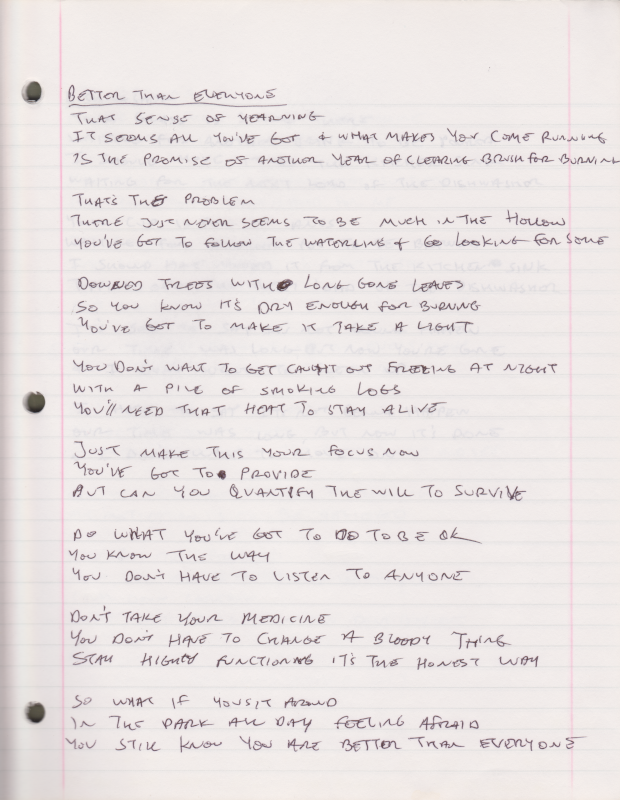 BETTER THAN EVERYONE
THAT SENSE OF YEARNING
IT SEEMS ALL YOU'VE GOT & WHAT MAKES YOU COME RUNNING
IS THE PROMISE OF ANOTHER YEAR OF CLEARING BRUSH FOR BURNING
THAT'S THE PROBLEM
THERE JUST NEVER SEEMS TO BE MUCH IN THE HOLLOW
YOU'VE GOT TO FOLLOW THE WATERLINE & GO LOOKING FOR SOME
DOWNED TREES WITH LONG GONE LEAVES
SO YOU KNOW IT'S DRY ENOUGH FOR BURNING
YOU'VE GOT TO MAKE IT TAKE A LIGHT
YOU DON'T WANT TO GET CAUGHT OUT FREEZING AT NIGHT
WITH A PILE OF SMOKING LOGS
YOU'LL NEED THAT HEAT TO STAY ALIVE
JUST MAKE THIS YOUR FOCUS NOW
YOU'VE GOT TO PROVIDE
BUT CAN YOU QUANTIFY THE WILL TO SURVIVE
DO WHAT YOU'VE GOT TO DO TO BE OK
YOU KNOW THE WAY
YOU DON'T HAVE TO LISTEN TO ANYONE
DON'T TAKE YOUR MEDICINE
YOU DON'T HAVE TO CHANGE A BLOODY THING
STAY HIGHLY FUNCTIONING IT'S THE HONEST WAY
SO WHAT IF YOU SIT AROUND
IN THE PARK ALL DAY FEELING AFRAID
YOU STILL KNOW YOU ARE BETTER THAN EVERYONE